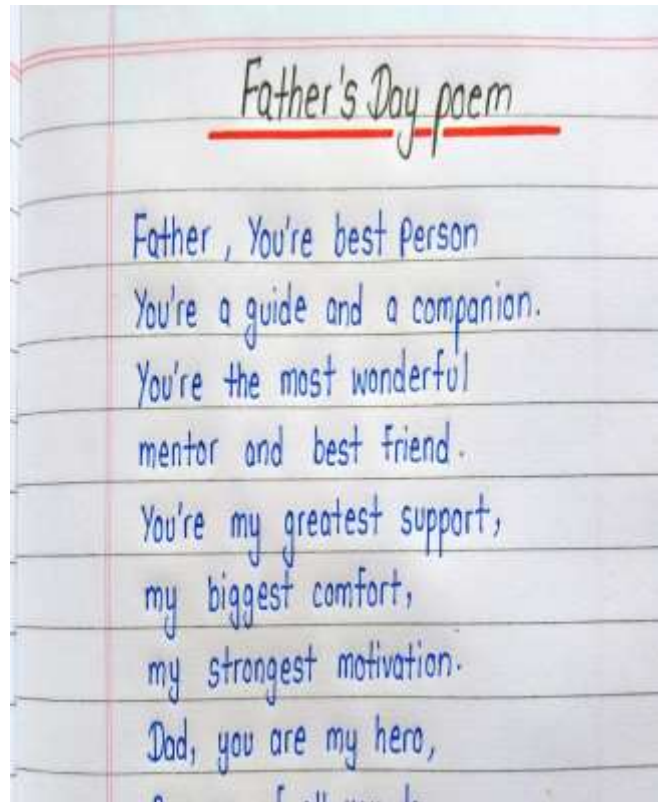 Father's Day poem
Father, You're best person
You're a guide and a companion.
You're the most wonderful
mentor and best friend.
You're my greatest support,
my biggest comfort,
my strongest motivation.
Dad, you are my hero,